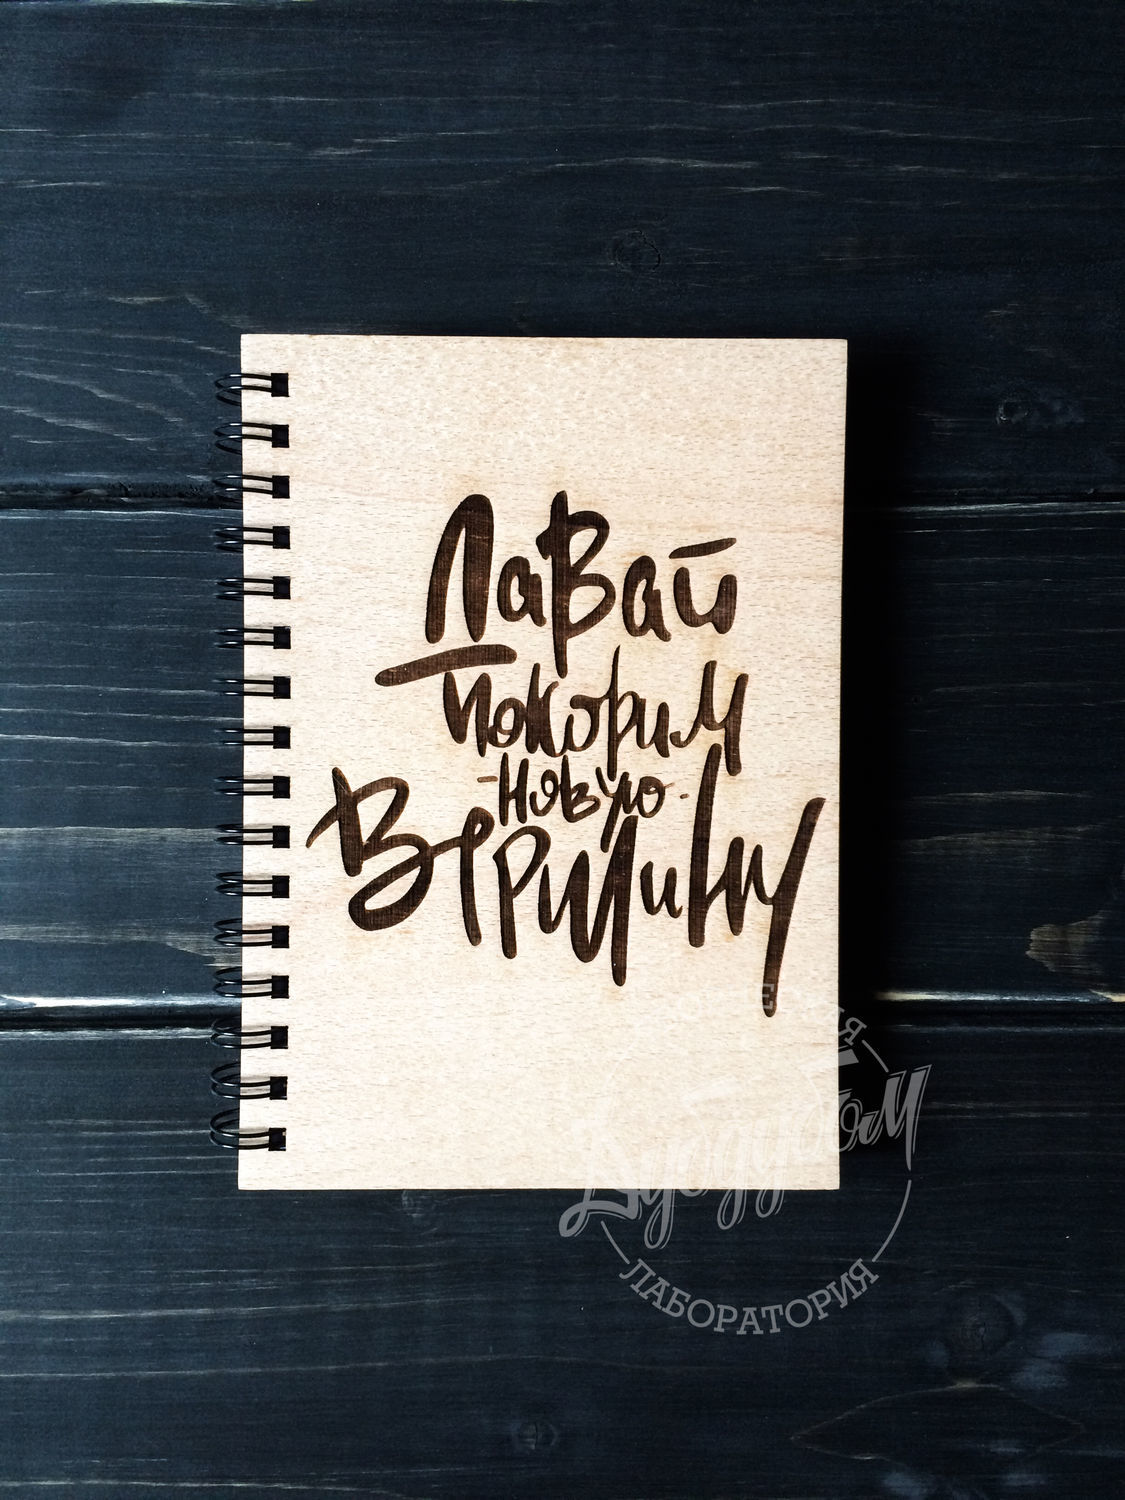 Давай
покорим
-Новую-
Вершину
Дубдубом
ЛАБОРАТОРИЯ